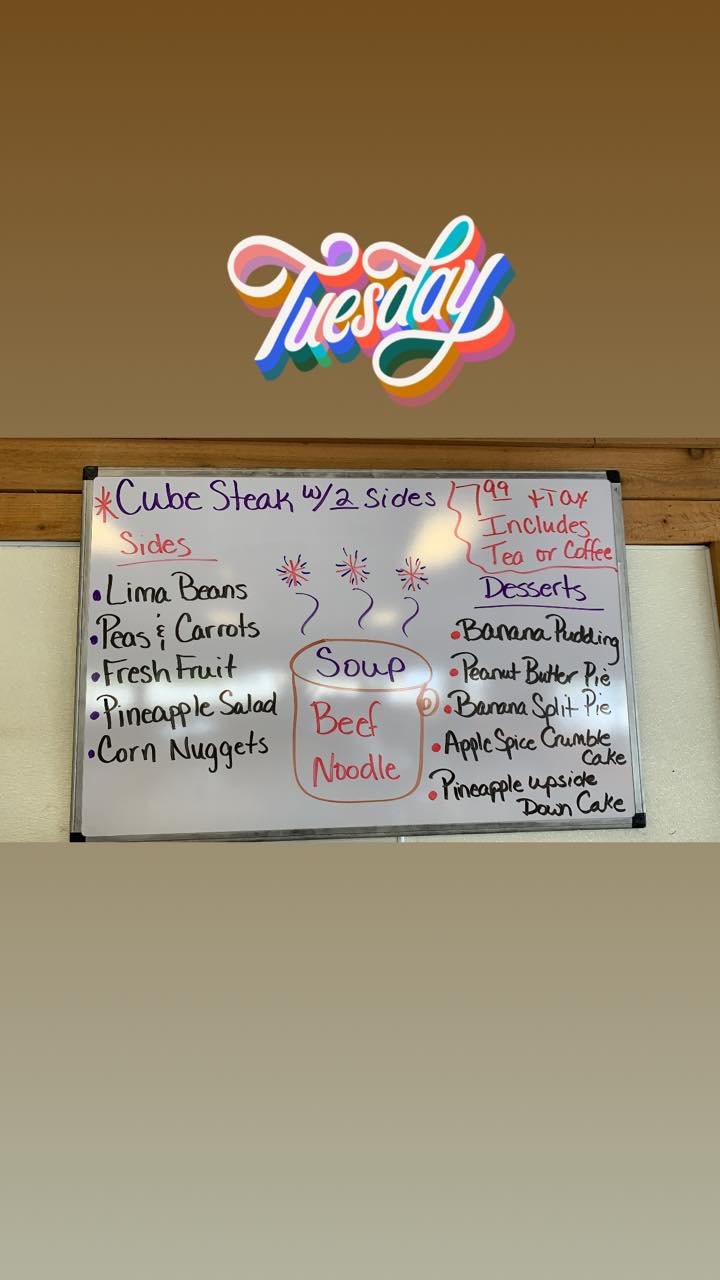 Tuesday
*Cube Steak w/2 Sides
7.99 +Tax
Includes
Tea or Coffee
Sides
• Lima Beans
• Peas & Carrots
• Fresh Fruit
• Pineapple Salad
• Corn Nuggets
Soup
Beef
Noodle
Desserts
• Banana Pudding
• Peanut Butter Pie
• Banana Split Pie
• Apple Spice Crumble
Cake
• Pineapple upside
Down Cake